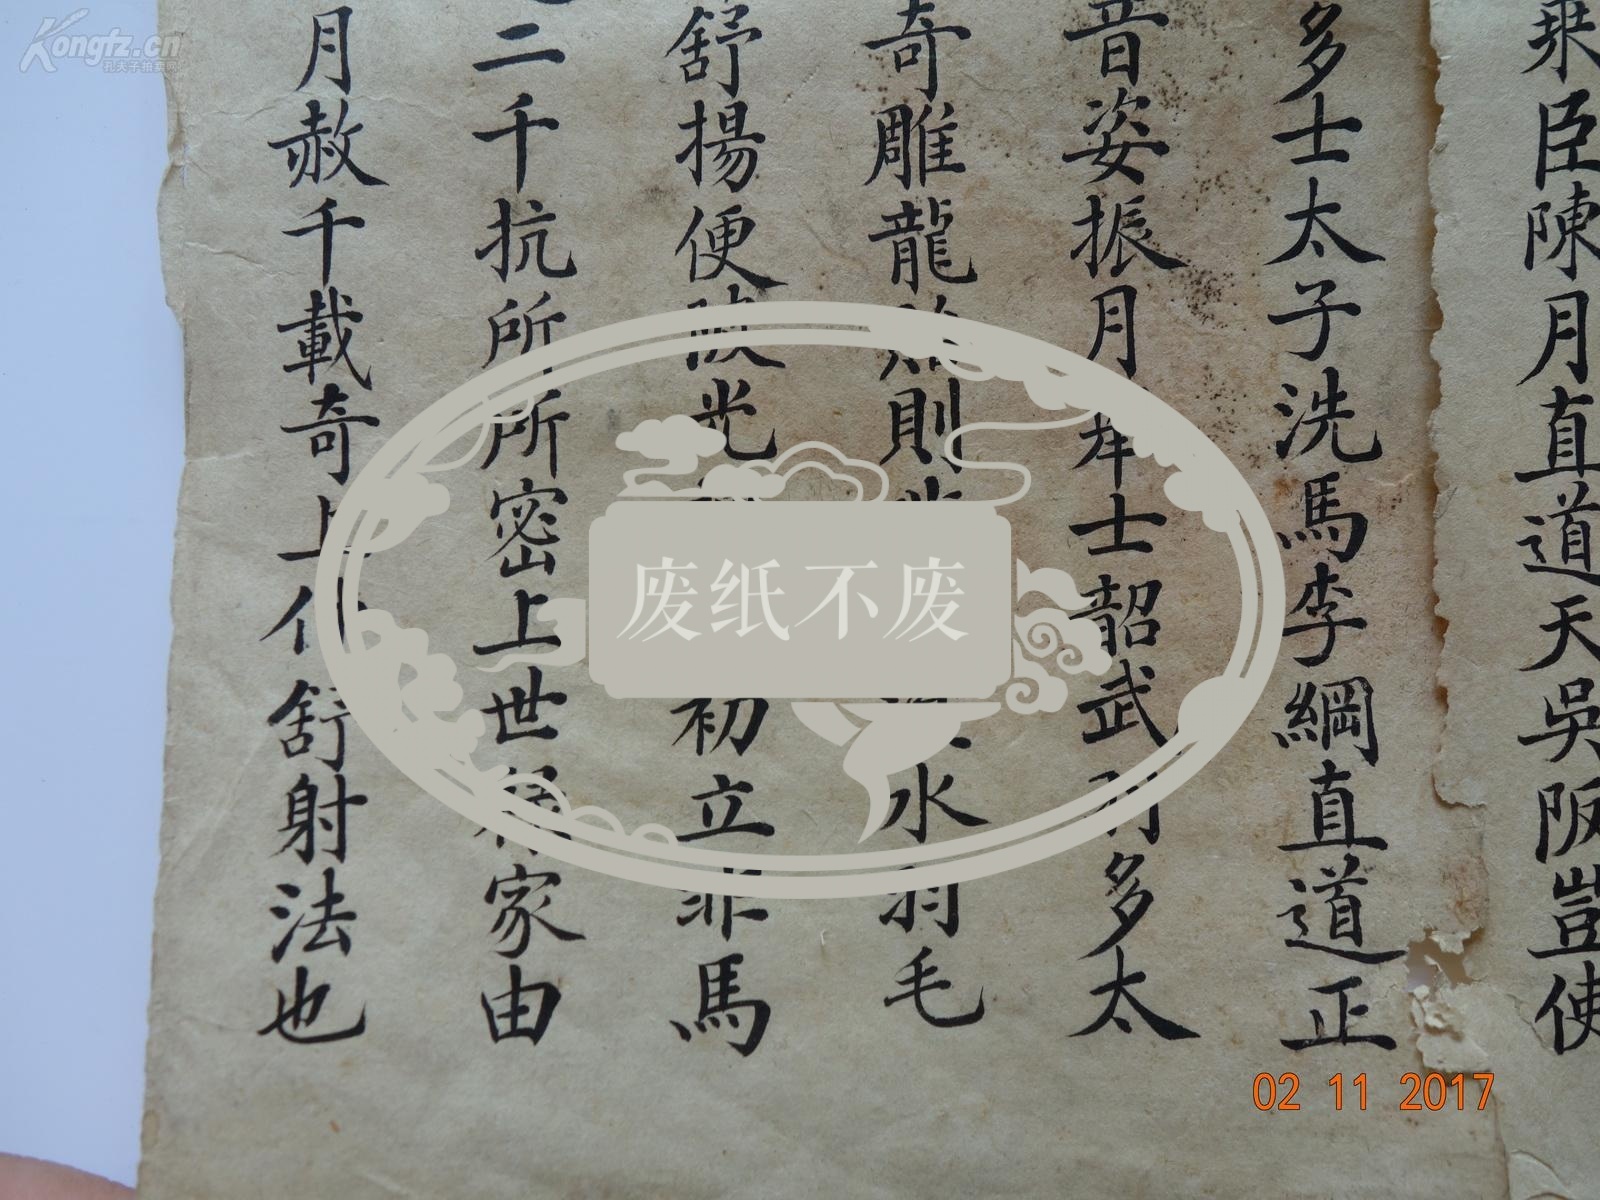 乘臣陳月直道天吳阪豈使
多士太子洗馬李綱直道正
音姿振月奉士韶武多太
奇雕龍則水羽毛
舒揚便陝光初立非馬
二千抗所所密上世家由
月赦千載奇上舒射法也
废纸不废
Kongfz.cn
孔夫子拍卖网
02 11 2017